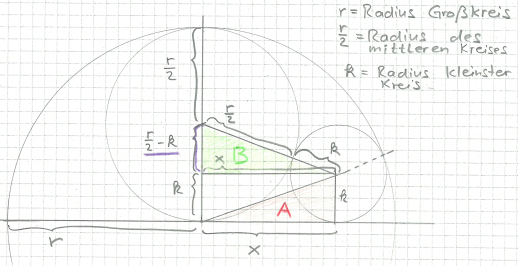 r = Radius Großkreis
r/2 = Radius des
mittleren Kreises
k = Radius kleinster
Kreis
r/2
r/2
r/2 - k
B
k
x
k
k
A
r
x